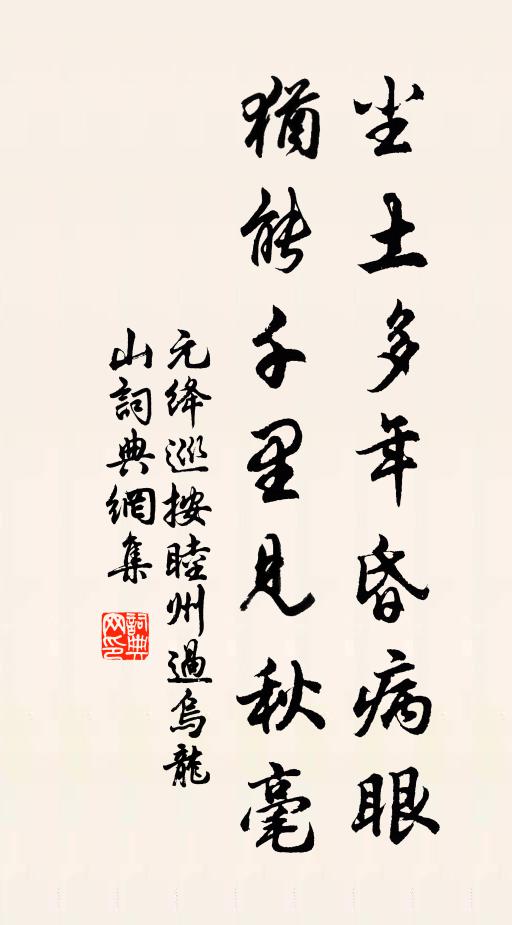 尘土多年昏病眼
犹能千里见秋毫
元绛巡按睦州過烏龍
山詞典網集
詞典网印